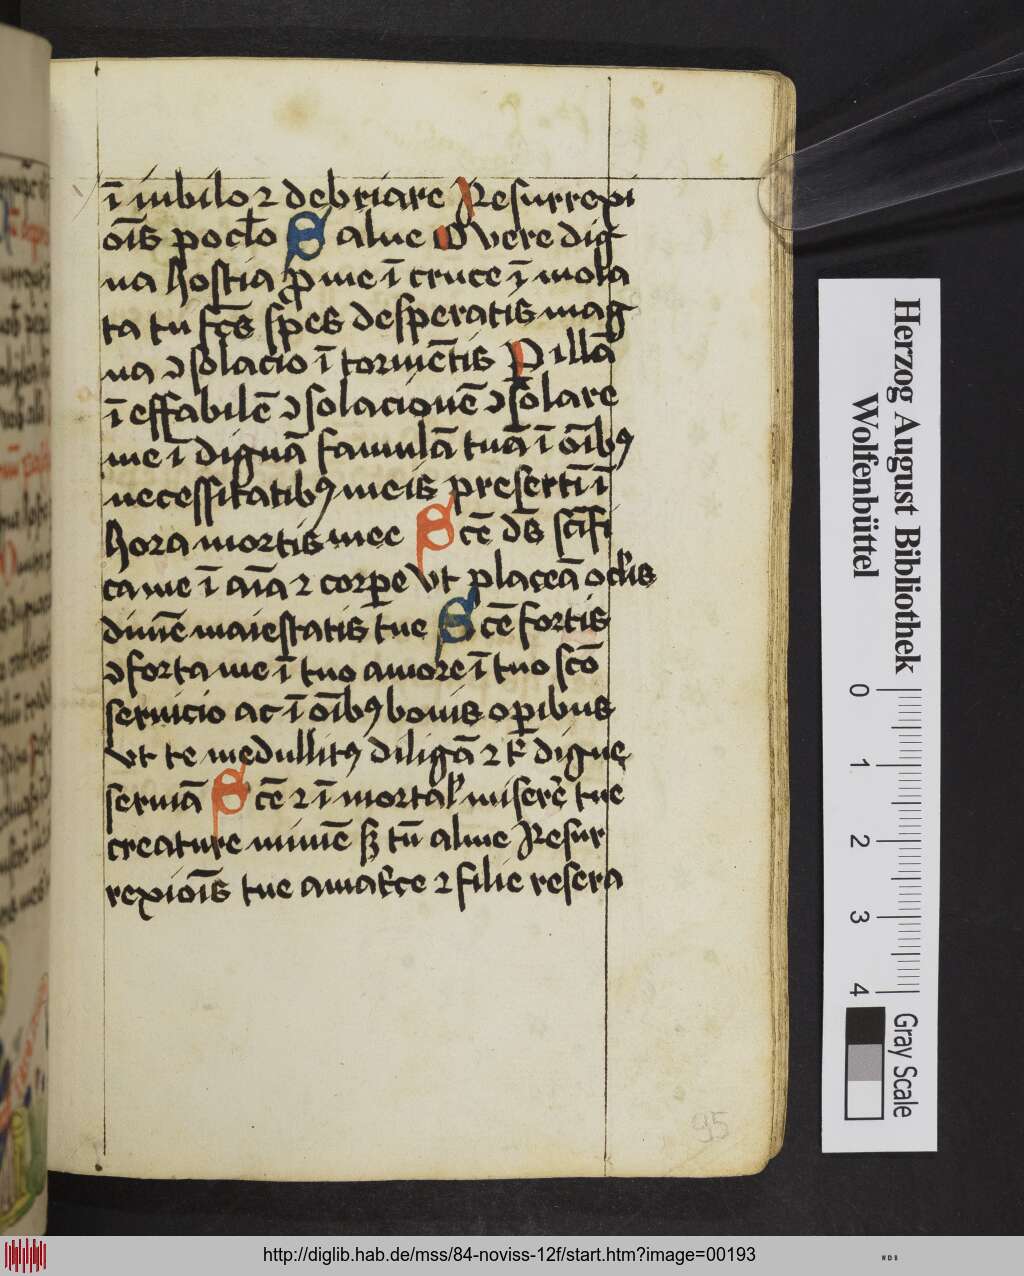 ī iubilo ⁊ debriare Resurrexi
oīs poclo Salue O vere dig
na hostia ꝓ me ī cruce īmola
ta tu scs spes desperatis mag
na ↄsolacio ī tormētis P illā
īeffabilē ↄsolacionē ↄsolare
me īdignā famulā tuā ī oībꝰ
necessitatibꝰ meis presertī ī
hora mortis mee Scē ds scīfi
ca me ī aīa ⁊ corꝑe vt placeā oclis
diuīe maiestatis tue Scē fortis
ↄforta me ī tuo amore ī tuo scō
seruicio ac ī oībꝰ bonis oꝑibus
vt te medullitꝰ diligā ⁊ t digne
seruiā Scē ⁊ īmortal misere tue
creature mīme ꝫ tn alme Resur
rexiōis tue amatce ⁊ filie resera
95
Herzog August Bibliothek
Wolfenbüttel
0 1 2 3 4
Gray Scale
http://diglib.hab.de/mss/84-noviss-12f/start.htm?image=00193